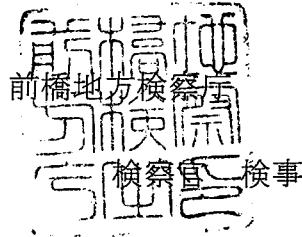 前橋地方検察庁
検察官 検事